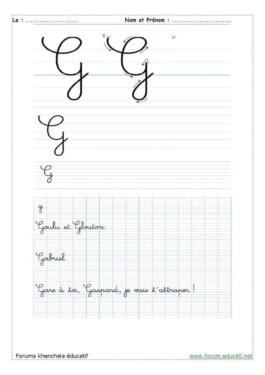 Le : ........................ Nom et Prénom : ........................
G G
G
G
g
Goulu et Glouton
Gabriel
Gare à toi, Gaspard, je vais t'attraper !
Forums khenchela éducatif www.forum.educ40.net